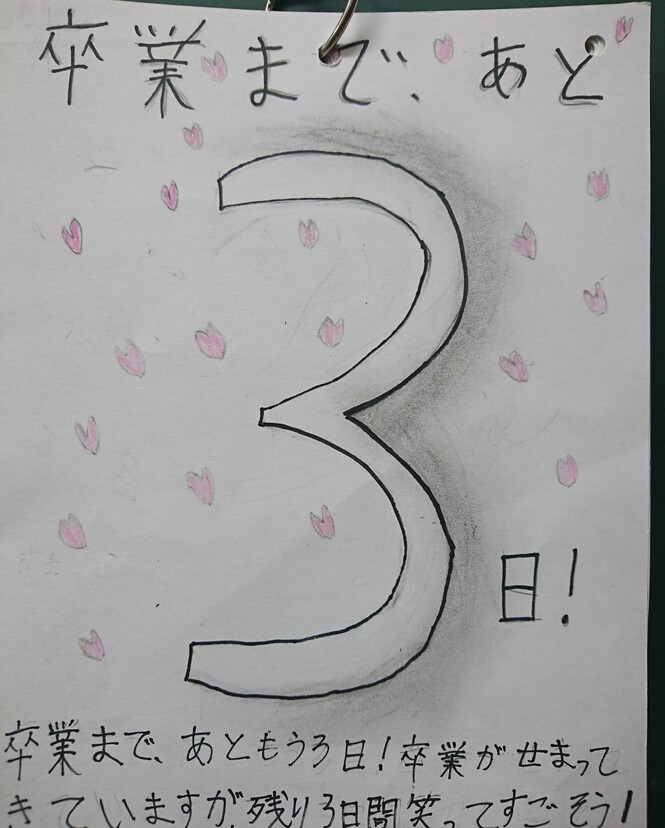 卒業まで、あと
3
日!
卒業まで、あともう3日!卒業がせまって
きていますが、残り3日間笑ってすごそう!